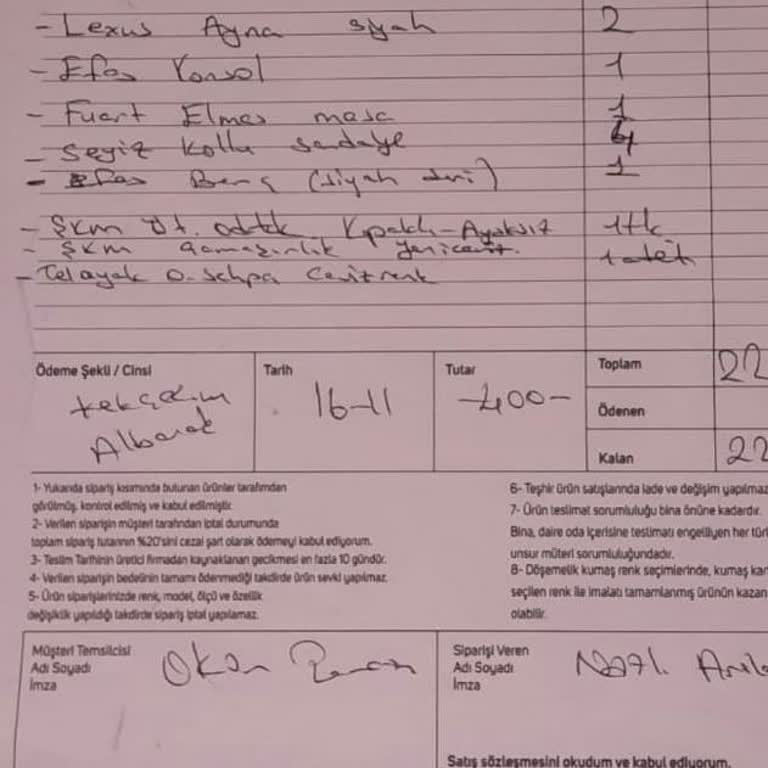 - Lexus Ayna siyah 2
- Efes Konsol 1
- Fuart Elmas masa 1
- Seyiz Kollu sandalye
- Efes Benç (siyah deri) 1
- Şkm Kapaklı-Ayaksız 1tk
- Şkm Çamaşırlık 1 adet
- Telayak O. Sehpa Ceviz renk
Ödeme Şekli / Cinsi
Albarak
Tarih
16-11
Tutar
400-
Toplam 22
Ödenen
Kalan 22
1- Yukarıda sipariş kısımında bulunan ürünler tarafımdan
görülmüş, kontrol edilmiş ve kabul edilmiştir.
2- Verilen siparişin müşteri tarafından iptal durumunda
toplam sipariş tutarının %20'sini cezai şart olarak ödemeyi kabul ediyorum.
3- Teslim Tarihinin üretici firmadan kaynaklanan gecikmesi en fazla 10 gündür.
4- Verilen siparişin bedelinin tamamı ödenmediği takdirde ürün sevki yapılmaz.
5- Ürün siparişlerinizde renk, model, ölçü ve özellik
değişiklik yapıldığı takdirde sipariş iptal yapılamaz.
6- Teşhir ürün satışlarında iade ve değişim yapılmaz
7- Ürün teslimat sorumluluğu bina önüne kadardır.
Bina, daire oda içerisine teslimatı engelliyen her tür
unsur müteri sorumluluğundadır.
8- Döşemelik kumaş renk seçimlerinde, kumaş kar
seçilen renk ile imalatı tamamlanmış ürünün kazan
olabilir.
Müşteri Temsilcisi
Adı Soyadı
İmza
Okan
Siparişi Veren
Adı Soyadı
İmza
Nazlı
Satış sözleşmesini okudum ve kabul ediyorum.